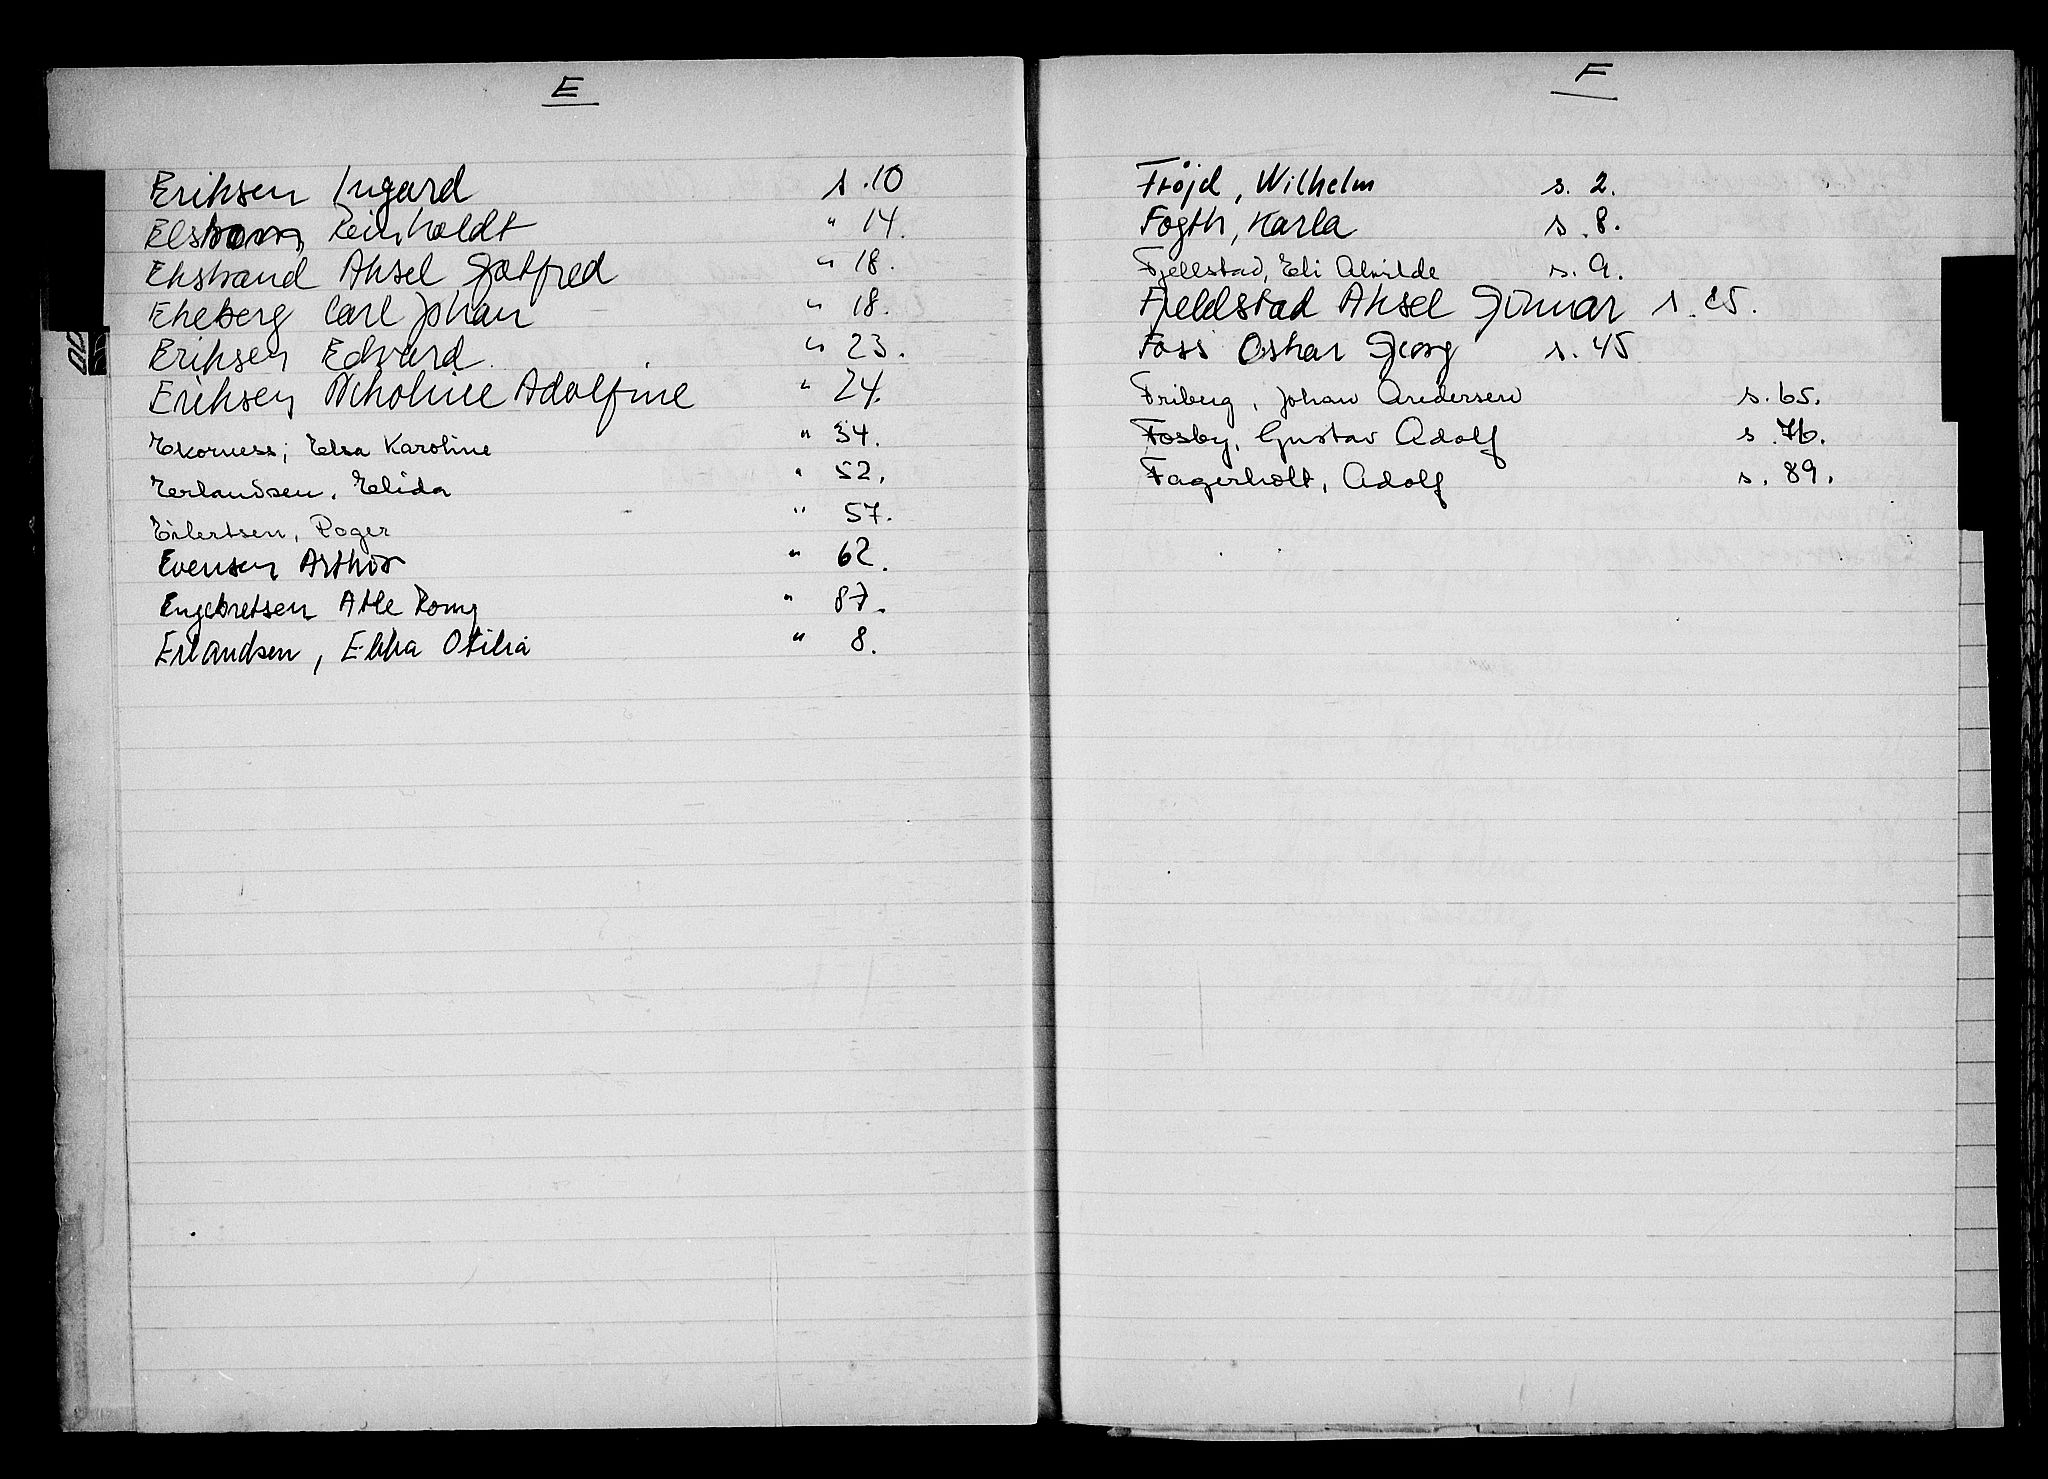 E
Eriksen Ingard s. 10
Elstrom Reinholdt " 14.
Ekstrand Aksel Gotfred " 18.
Ekeberg Carl Johan " 18.
Eriksen Edvard " 23.
Eriksen Nikoline Adolfine " 24.
Ekorness, Elsa Karoline " 34.
Erlandsen, Elida " 52.
Eilertsen, Roger " 57.
Evensen Arthur " 62.
Engebretsen Atle Romy " 87.
Erlandsen, Ebba Otilia " 8.
F
Fröjd, Wilhelm s. 2.
Fogth, Karla s. 8.
Fjellstad, Eli Alvilde s. 9.
Fjeldstad Aksel Gunnar s. 25.
Foss Oskar Georg s. 45
Friberg, Johan Andersen s. 65.
Fosby, Gustav Adolf s. 76.
Fagerholt, Adolf s. 89.